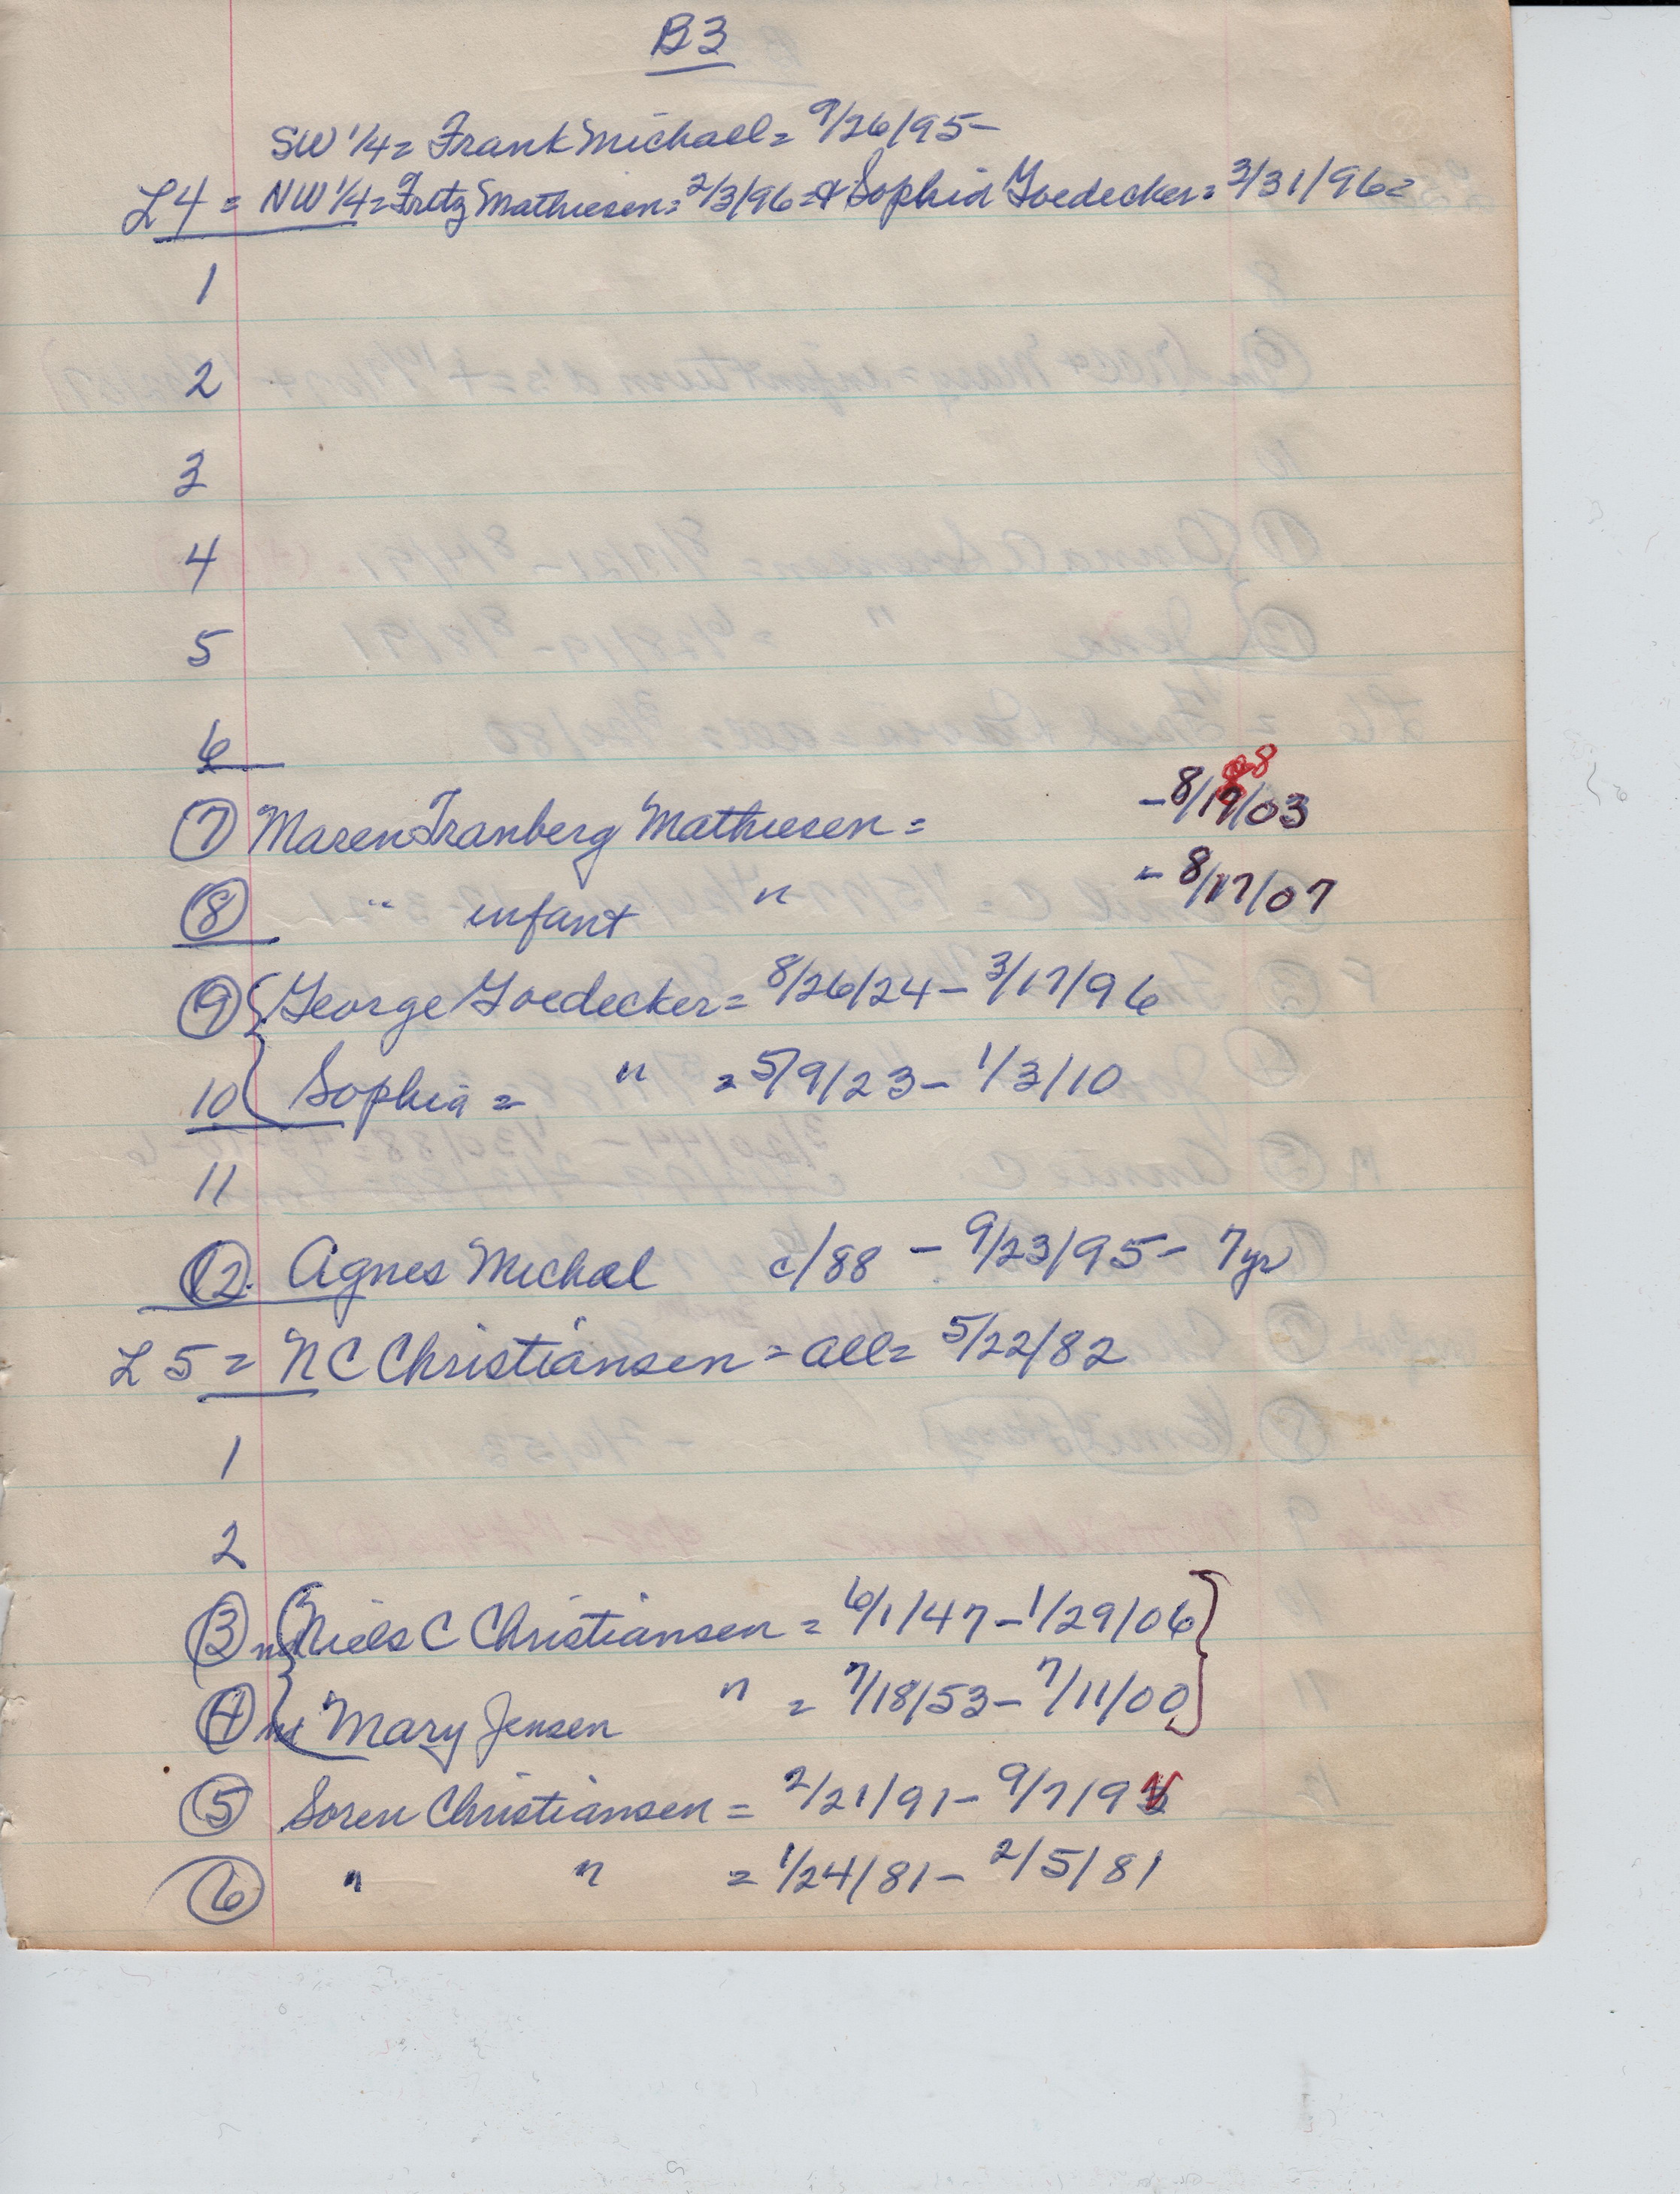 B3
SW 1/4 = Frank Michael = 9/26/95 -
L4 = NW 1/4 = Fritz Mathiesen = 2/3/96 = & Sophia Goedecker = 3/31/96 =
1
2
3
4
5
6
7 Maren Tranberg Mathiesen = - 8/17/03
8 " infant " - 8/17/07
9 { George Goedecker = 8/26/24 - 3/17/96
10 { Sophia = " = 5/9/23 - 1/3/10
11
12. Agnes Michal c/88 - 9/23/95 - 7 yr
L5 = N C Christiansen = all = 5/22/82
1
2
3 m { Niels C Christiansen = 6/1/47 - 1/29/06 }
4 m { Mary Jensen " = 7/18/53 - 7/11/00 }
5 Soren Christiansen = 2/21/91 - 9/7/9
6 " " = 1/24/81 - 2/5/81